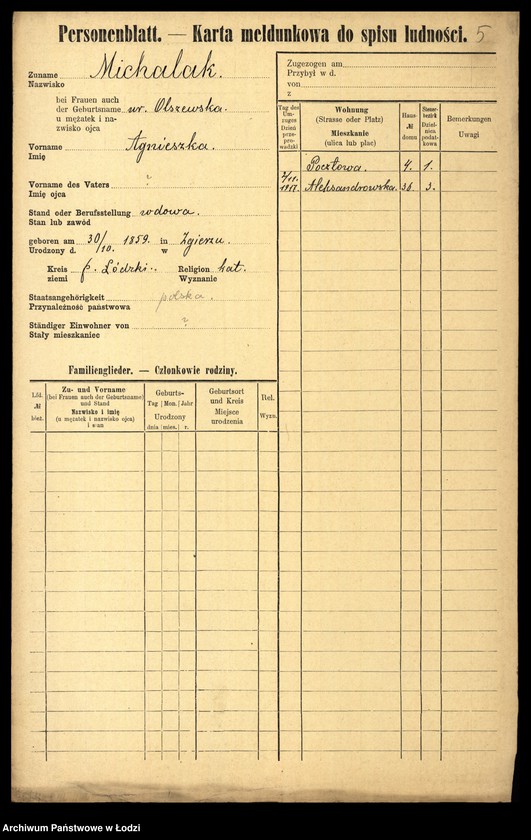 Personenblatt. — Karta meldunkowa do spisu ludności. 5
Zuname Michalak.
Nazwisko
bei Frauen auch
der Geburtsname ur. Olszewska.
u mężatek i na-
zwisko ojca
Vorname Agnieszka.
Imię
Vorname des Vaters ?
Imię ojca
Stand oder Berufsstellung wdowa.
Stan lub zawód
geboren am 30/10. 1859. in Zgierzu.
Urodzony d. w
Kreis p. Łódzki. Religion kat.
ziemi Wyznanie
Staatsangehörigkeit polska.
Przynależność państwowa
Ständiger Einwohner von ?
Stały mieszkaniec
Familienglieder. — Członkowie rodziny.
Lfd.
№
bież.
Zu- und Vorname
(bei Frauen auch der Geburtsname)
und Stand
Nazwisko i imię
(u mężatek i nazwisko ojca)
i stan
Geburts-
Tag Mon. Jahr
Urodzony
dnia mies. r.
Geburtsort
und Kreis
Miejsce
urodzenia
Rel.
Wyzn.
Zugezogen am
Przybył w d.
von
z
Tag des
Um-
zuges
Dzień
prze-
prowadzki
Wohnung
(Strasse oder Platz)
Mieszkanie
(ulica lub plac)
Haus-
№
domu
Steuer-
bezirk
Dziel-
nica
podat-
kowa
Bemerkungen
Uwagi
Pocztowa. 4. 1.
1918. Aleksandrowska. 36. 3.
Archiwum Państwowe w Łodzi